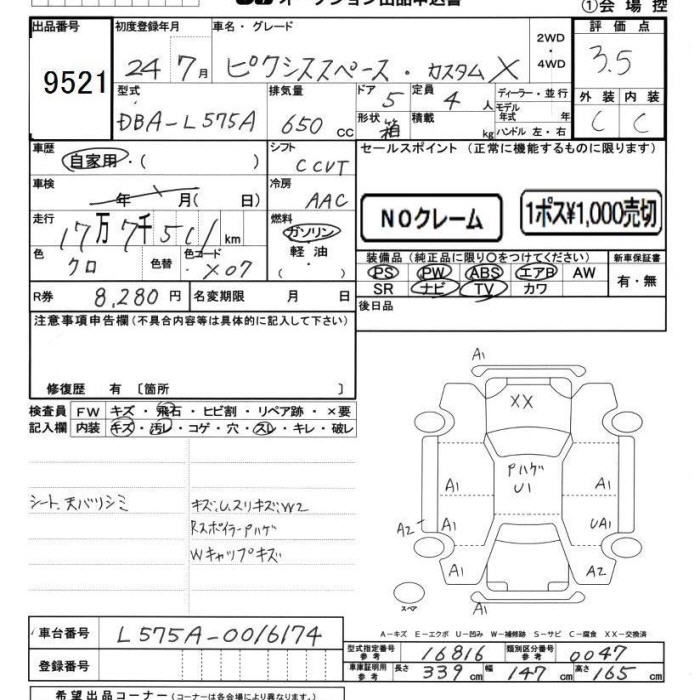 オークション出品申込書
①会場控
出品番号
9521
初度登録年月
24年 7月
車名・グレード
ピクシススペース・カスタムX
2WD
・
4WD
評価点
3.5
型式
DBA-L575A
排気量
650 cc
ドア
5
形状
箱
定員
4人
積載
kg
ディーラー・並行
モデル年式 年
ハンドル 左・右
外装
C
内装
C
車歴
自家用・( )
シフト
CCVT
セールスポイント (正常に機能するものに限ります)
車検
年 月( 日)
冷房
AAC
NOクレーム
1ポス¥1,000売切
走行
17万7千511km
燃料
ガソリン
・
軽油
( ・ )
色
クロ
色替
色コード
X07
装備品 (純正品に限り○をつけてください)
PS PW ABS エアB AW
SR ナビ TV カワ
新車保証書
有・無
R券
8,280円
名変期限 月 日
後日品
注意事項申告欄(不具合内容等は具体的に記入して下さい)
修復歴 有〔箇所 〕
検査員
記入欄
FW キズ・飛石・ヒビ割・リペア跡・×要
内装 キズ・汚レ・コゲ・穴・スレ・キレ・破レ
シート、天バリシミ
キズ、U、スリキズ、W2
Rスポイラーハゲ
Wキャップキズ
A1
XX
Pハゲ
U1
A1
A1
A1
A2
UA1
A2
A1
スペア
A−キズ E−エクボ U−凹み W−補修跡 S−サビ C−腐食 XX−交換済
車台番号
L575A-0016174
登録番号
型式指定番号
参考
16816
類別区分番号
参考
0047
車庫証明用
参考
長さ 339cm 幅 147cm 高さ 165cm
希望出品コーナー(コーナーは各会場により異なります。)